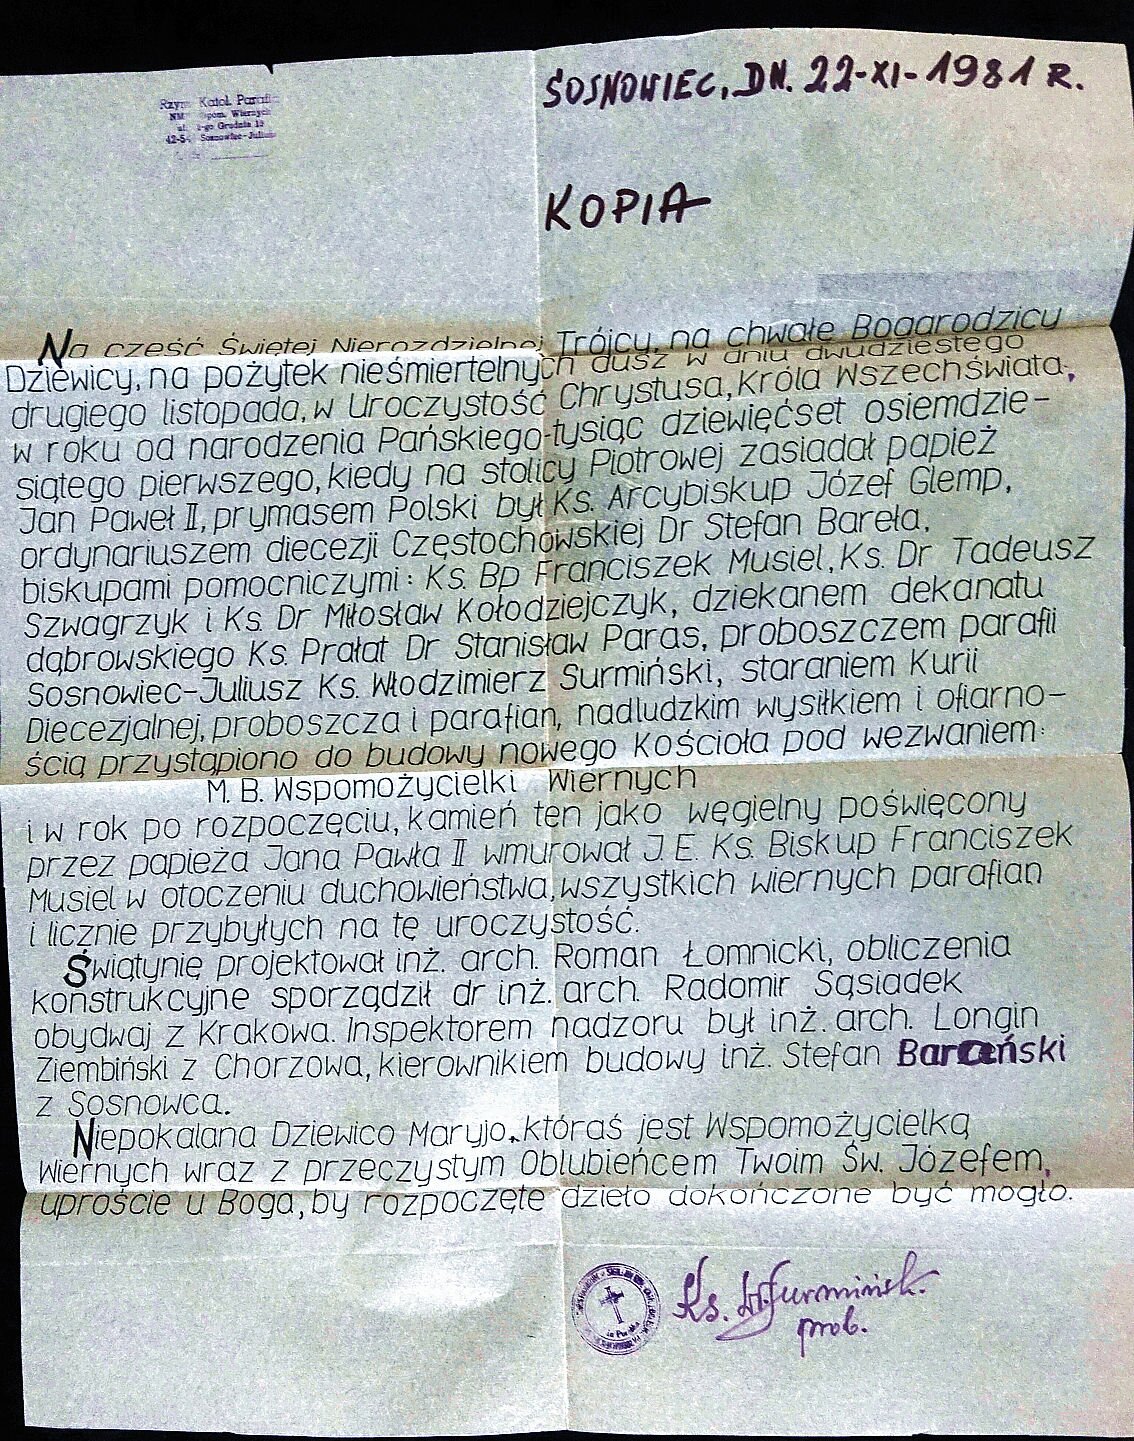 Rzym Katol. Parafia
NM Wspom. Wiernych
ul. 1-go Grudnia 15
Sosnowiec-Juliusz
SOSNOWIEC, DN. 22-XI-1981 R.
KOPIA
Na cześć Świętej Nierozdzielnej Trójcy, na chwałę Bogarodzicy
Dziewicy, na pożytek nieśmiertelnych dusz w dniu dwudziestego
drugiego listopada, w Uroczystość Chrystusa, Króla Wszechświata,
w roku od narodzenia Pańskiego-tysiąc dziewięćset osiemdzie-
siątego pierwszego, kiedy na stolicy Piotrowej zasiadał papież
Jan Paweł II, prymasem Polski był Ks. Arcybiskup Józef Glemp,
ordynariuszem diecezji Częstochowskiej Dr Stefan Bareła,
biskupami pomocniczymi: Ks. Bp Franciszek Musiel, Ks. Dr Tadeusz
Szwagrzyk i Ks. Dr Miłosław Kołodziejczyk, dziekanem dekanatu
dąbrowskiego Ks. Prałat Dr Stanisław Paras, proboszczem parafii
Sosnowiec-Juliusz Ks. Włodzimierz Surmiński, staraniem Kurii
Diecezjalnej, proboszcza i parafian, nadludzkim wysiłkiem i ofiarno-
ścią przystąpiono do budowy nowego Kościoła pod wezwaniem:
M. B. Wspomożycielki Wiernych
i w rok po rozpoczęciu, kamień ten jako węgielny poświęcony
przez papieża Jana Pawła II wmurował J. E. Ks. Biskup Franciszek
Musiel w otoczeniu duchowieństwa, wszystkich wiernych parafian
i licznie przybyłych na tę uroczystość.
Świątynię projektował inż. arch. Roman Łomnicki, obliczenia
konstrukcyjne sporządził dr inż. arch. Radomir Sąsiadek
obydwaj z Krakowa. Inspektorem nadzoru był inż. arch. Longin
Ziembiński z Chorzowa, kierownikiem budowy inż. Stefan
z Sosnowca.
Niepokalana Dziewico Maryjo, któraś jest Wspomożycielką
Wiernych wraz z przeczystym Oblubieńcem Twoim Św. Józefem,
uproście u Boga, by rozpoczęte dzieło dokończone być mogło.
Ks. W. Surmiński
prob.